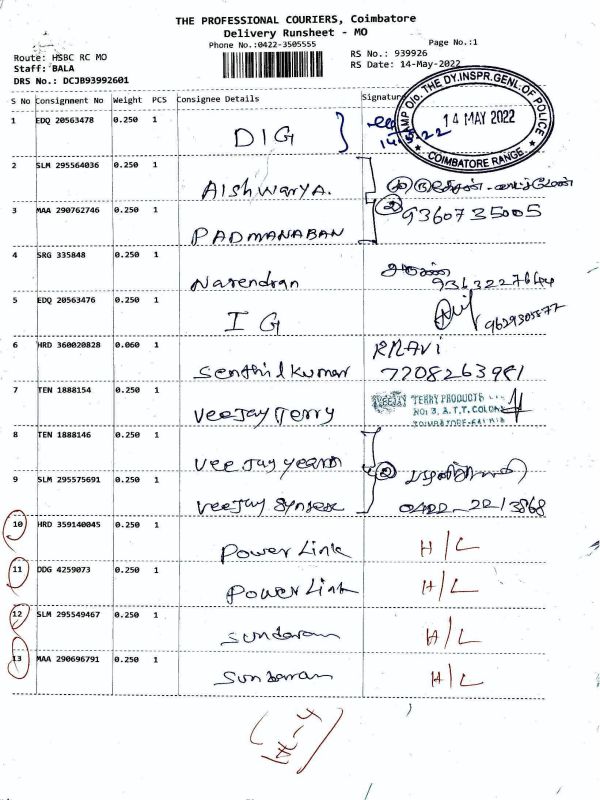 THE PROFESSIONAL COURIERS, Coimbatore
Delivery Runsheet - MO
Phone No.:0422-3505555
Page No.:1
Route: HSBC RC MO
Staff: BALA
DRS No.: DCJB93992601
RS No.: 939926
RS Date: 14-May-2022
S No Consignment No Weight PCS Consignee Details Signature
CAMP O/o. THE DY.INSPR.GENL.OF POLICE
14 MAY 2022
COIMBATORE RANGE.
1 EDQ 20563478 0.250 1 DIG
14.5.22
2 SLM 295564036 0.250 1 Aishwarya.
3 MAA 290762746 0.250 1 PADMANABAN
9360735005
4 SRG 335848 0.250 1 Narendran
5 EDQ 20563476 0.250 1 IG
9629305677
6 HRD 360020828 0.060 1 Senthil kumar
7208263981
7 TEN 1888154 0.250 1 Veejay Terry
VEEJAY TERRY PRODUCTS
NO: 3, A.T.T. COLONY
COIMBATORE-641 018
8 TEN 1888146 0.250 1 Veejay yearn
9 SLM 295575691 0.250 1 Veejay Syntex
0422-2213868
10 HRD 359140045 0.250 1 Power Link H/L
11 DDG 4259073 0.250 1 Power Link H/L
12 SLM 295549467 0.250 1 Sundaram H/L
13 MAA 290696791 0.250 1 Sundaram H/L